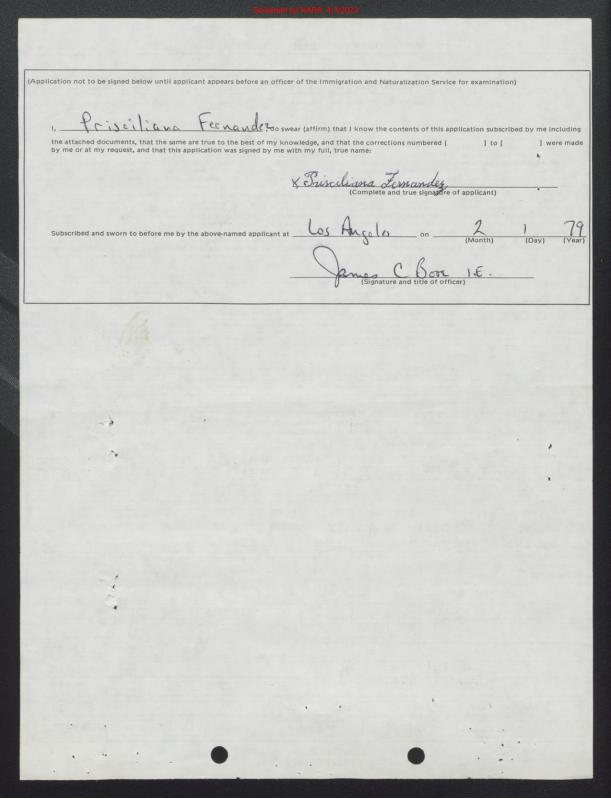 Scanned by NARA, 4/3/2023
(Application not to be signed below until applicant appears before an officer of the Immigration and Naturalization Service for examination)
I, Prisciliana Fernandez do swear (affirm) that I know the contents of this application subscribed by me including
the attached documents, that the same are true to the best of my knowledge, and that the corrections numbered [ ] to [ ] were made
by me or at my request, and that this application was signed by me with my full, true name:
x Prisciliana Fernandez
(Complete and true signature of applicant)
Subscribed and sworn to before me by the above-named applicant at Los Angeles on 2 1 79
(Month) (Day) (Year)
James C I.E.
(Signature and title of officer)